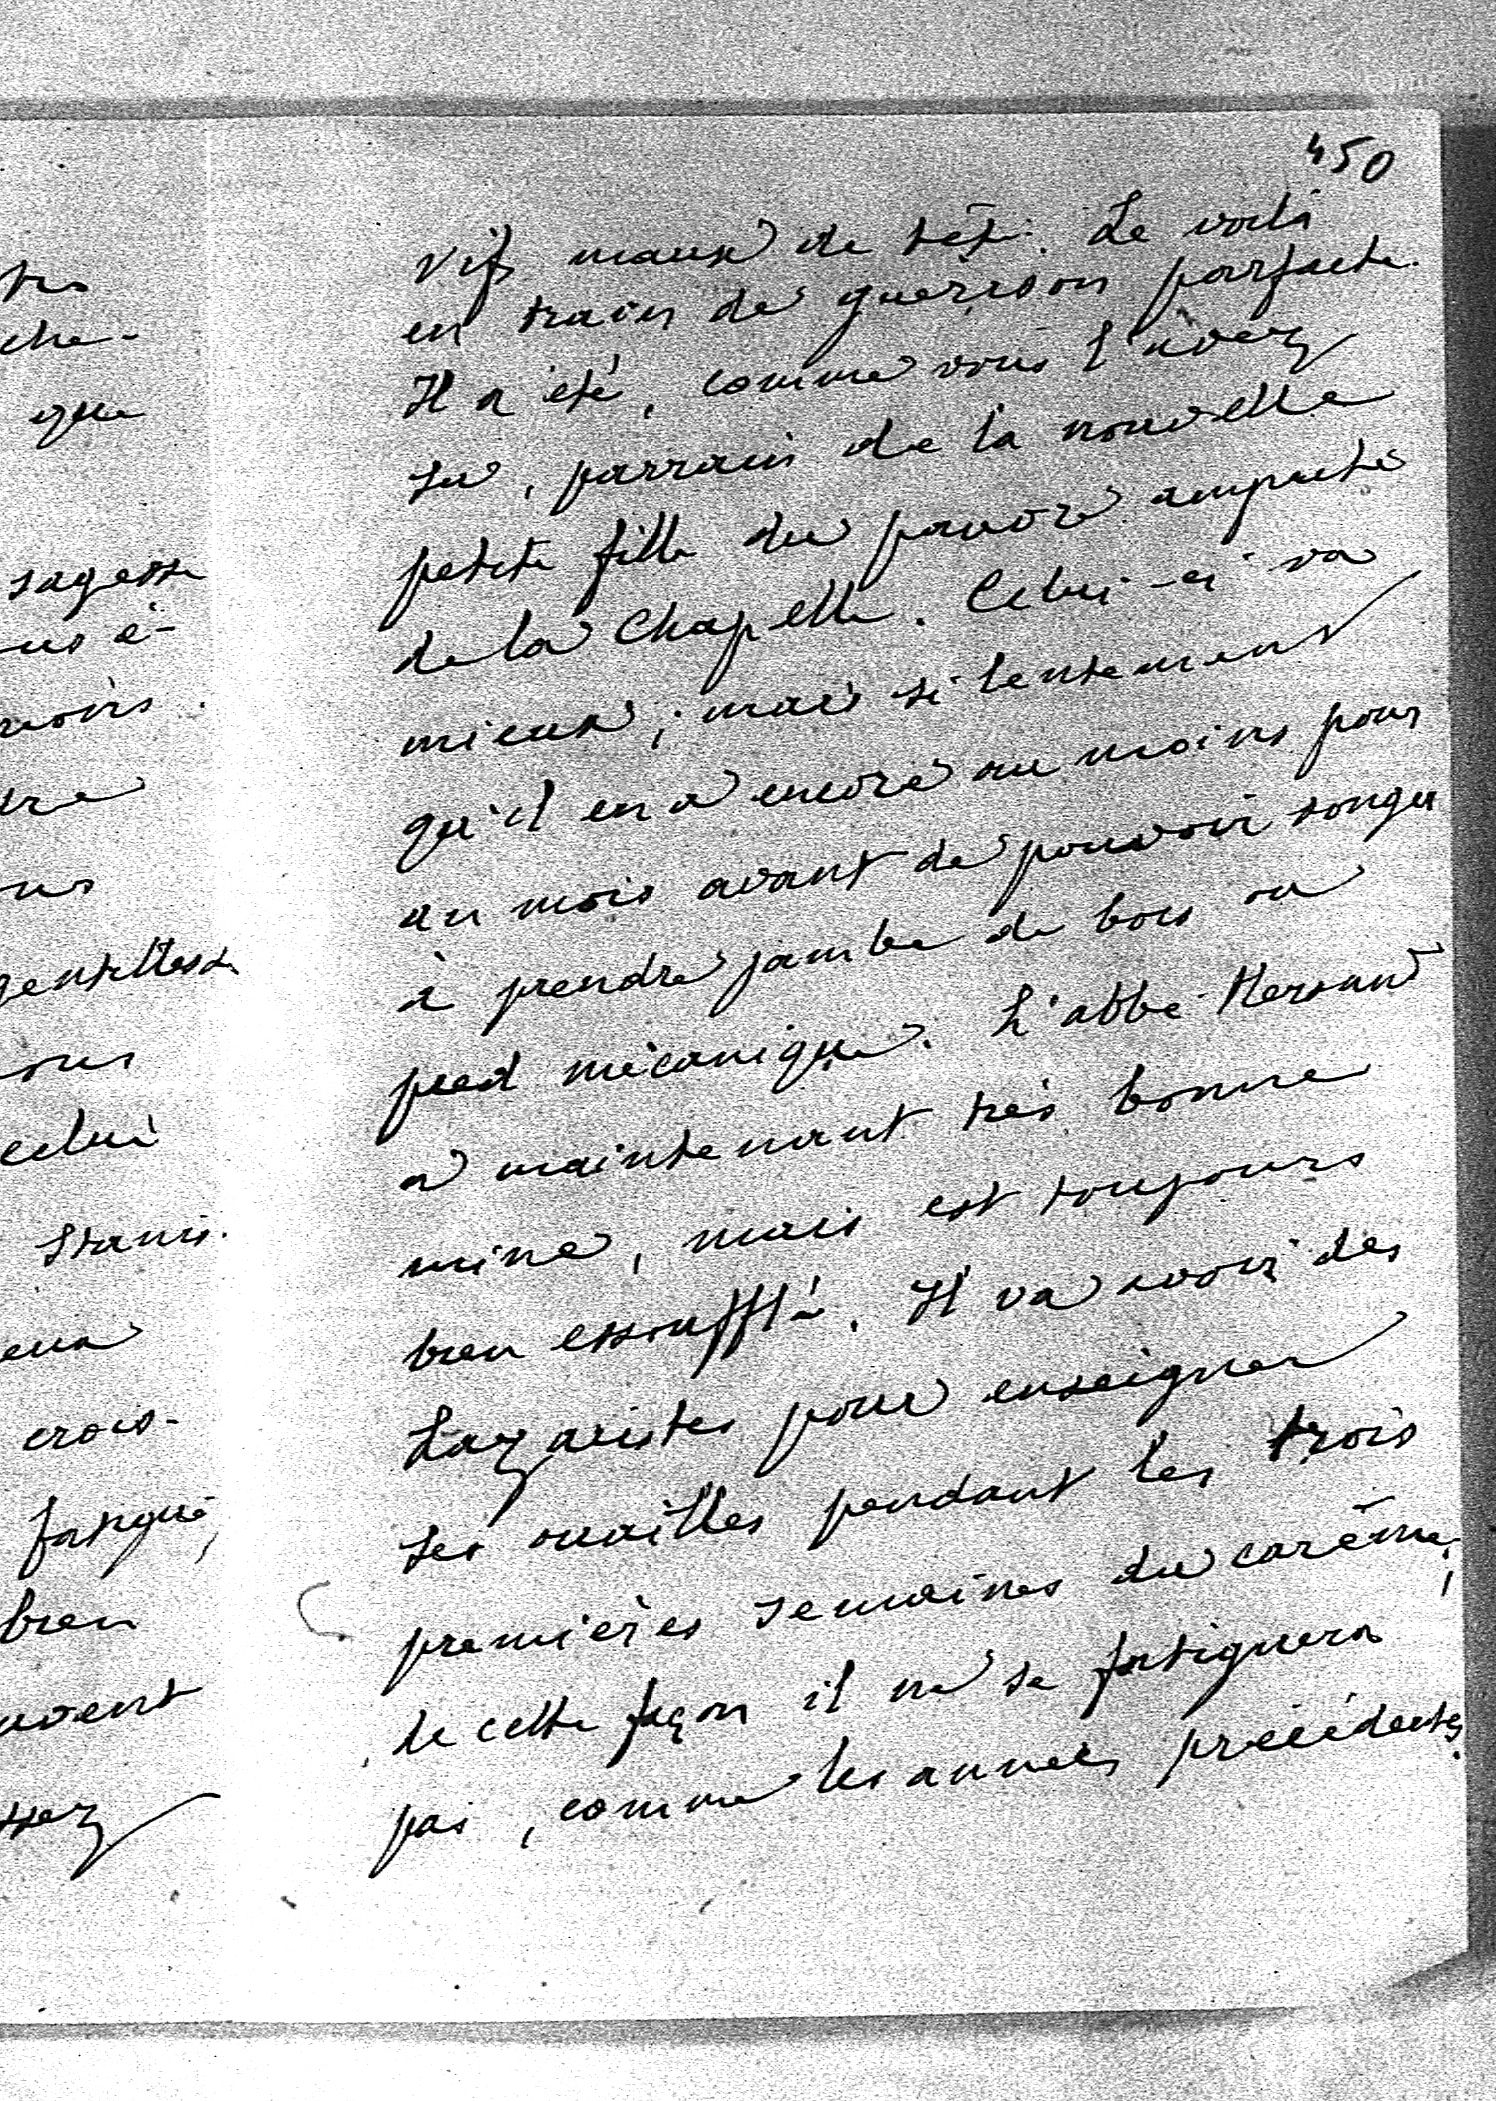 450
vifs maux de tête. Le voilà
en train de guérison parfaite.
Il a été, comme vous l'avez
su, parrain de la nouvelle
petite fille du pauvre amputé
de la Chapelle. Celui-ci va
mieux ; mais si lentement
qu'il en a encore au moins pour
un mois avant de pouvoir songer
à prendre jambe de bois ou
pied mécanique. L'abbé
a maintenant très bonne
mine, mais est toujours
bien essoufflé. Il va avoir des
Lazaristes pour enseigner
ses ouailles pendant les trois
premières semaines du carême ;
de cette façon il ne se fatiguera
pas, comme les années précédentes.
che-
que
sagesse
gentillesse
celui
crois-
fatigué,
bien